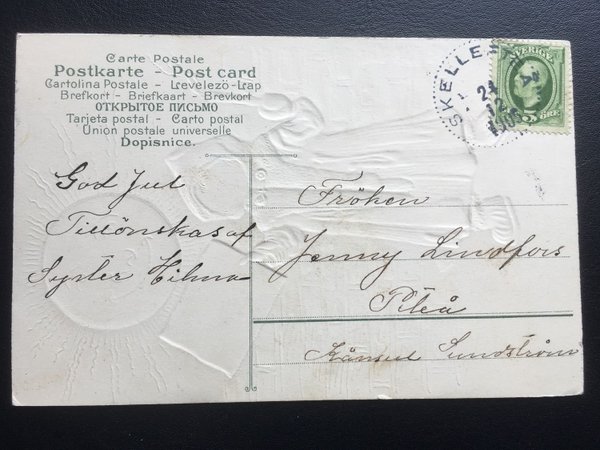 Carte Postale
Postkarte - Post card
Cartolina Postale - Levelező-Lap
Brefkort - Briefkaart - Brevkort
ОТКРЫТОЕ ПИСЬМО
Tarjeta postal - Carto postal
Union postale universelle
Dopisnice.
SKELLE
24
12
1905
SVERIGE
5 ÖRE
God Jul
Tillönskas af
Syster Hilma
Fröken
Jenny Lindfors
Piteå
Kånsul Sundström